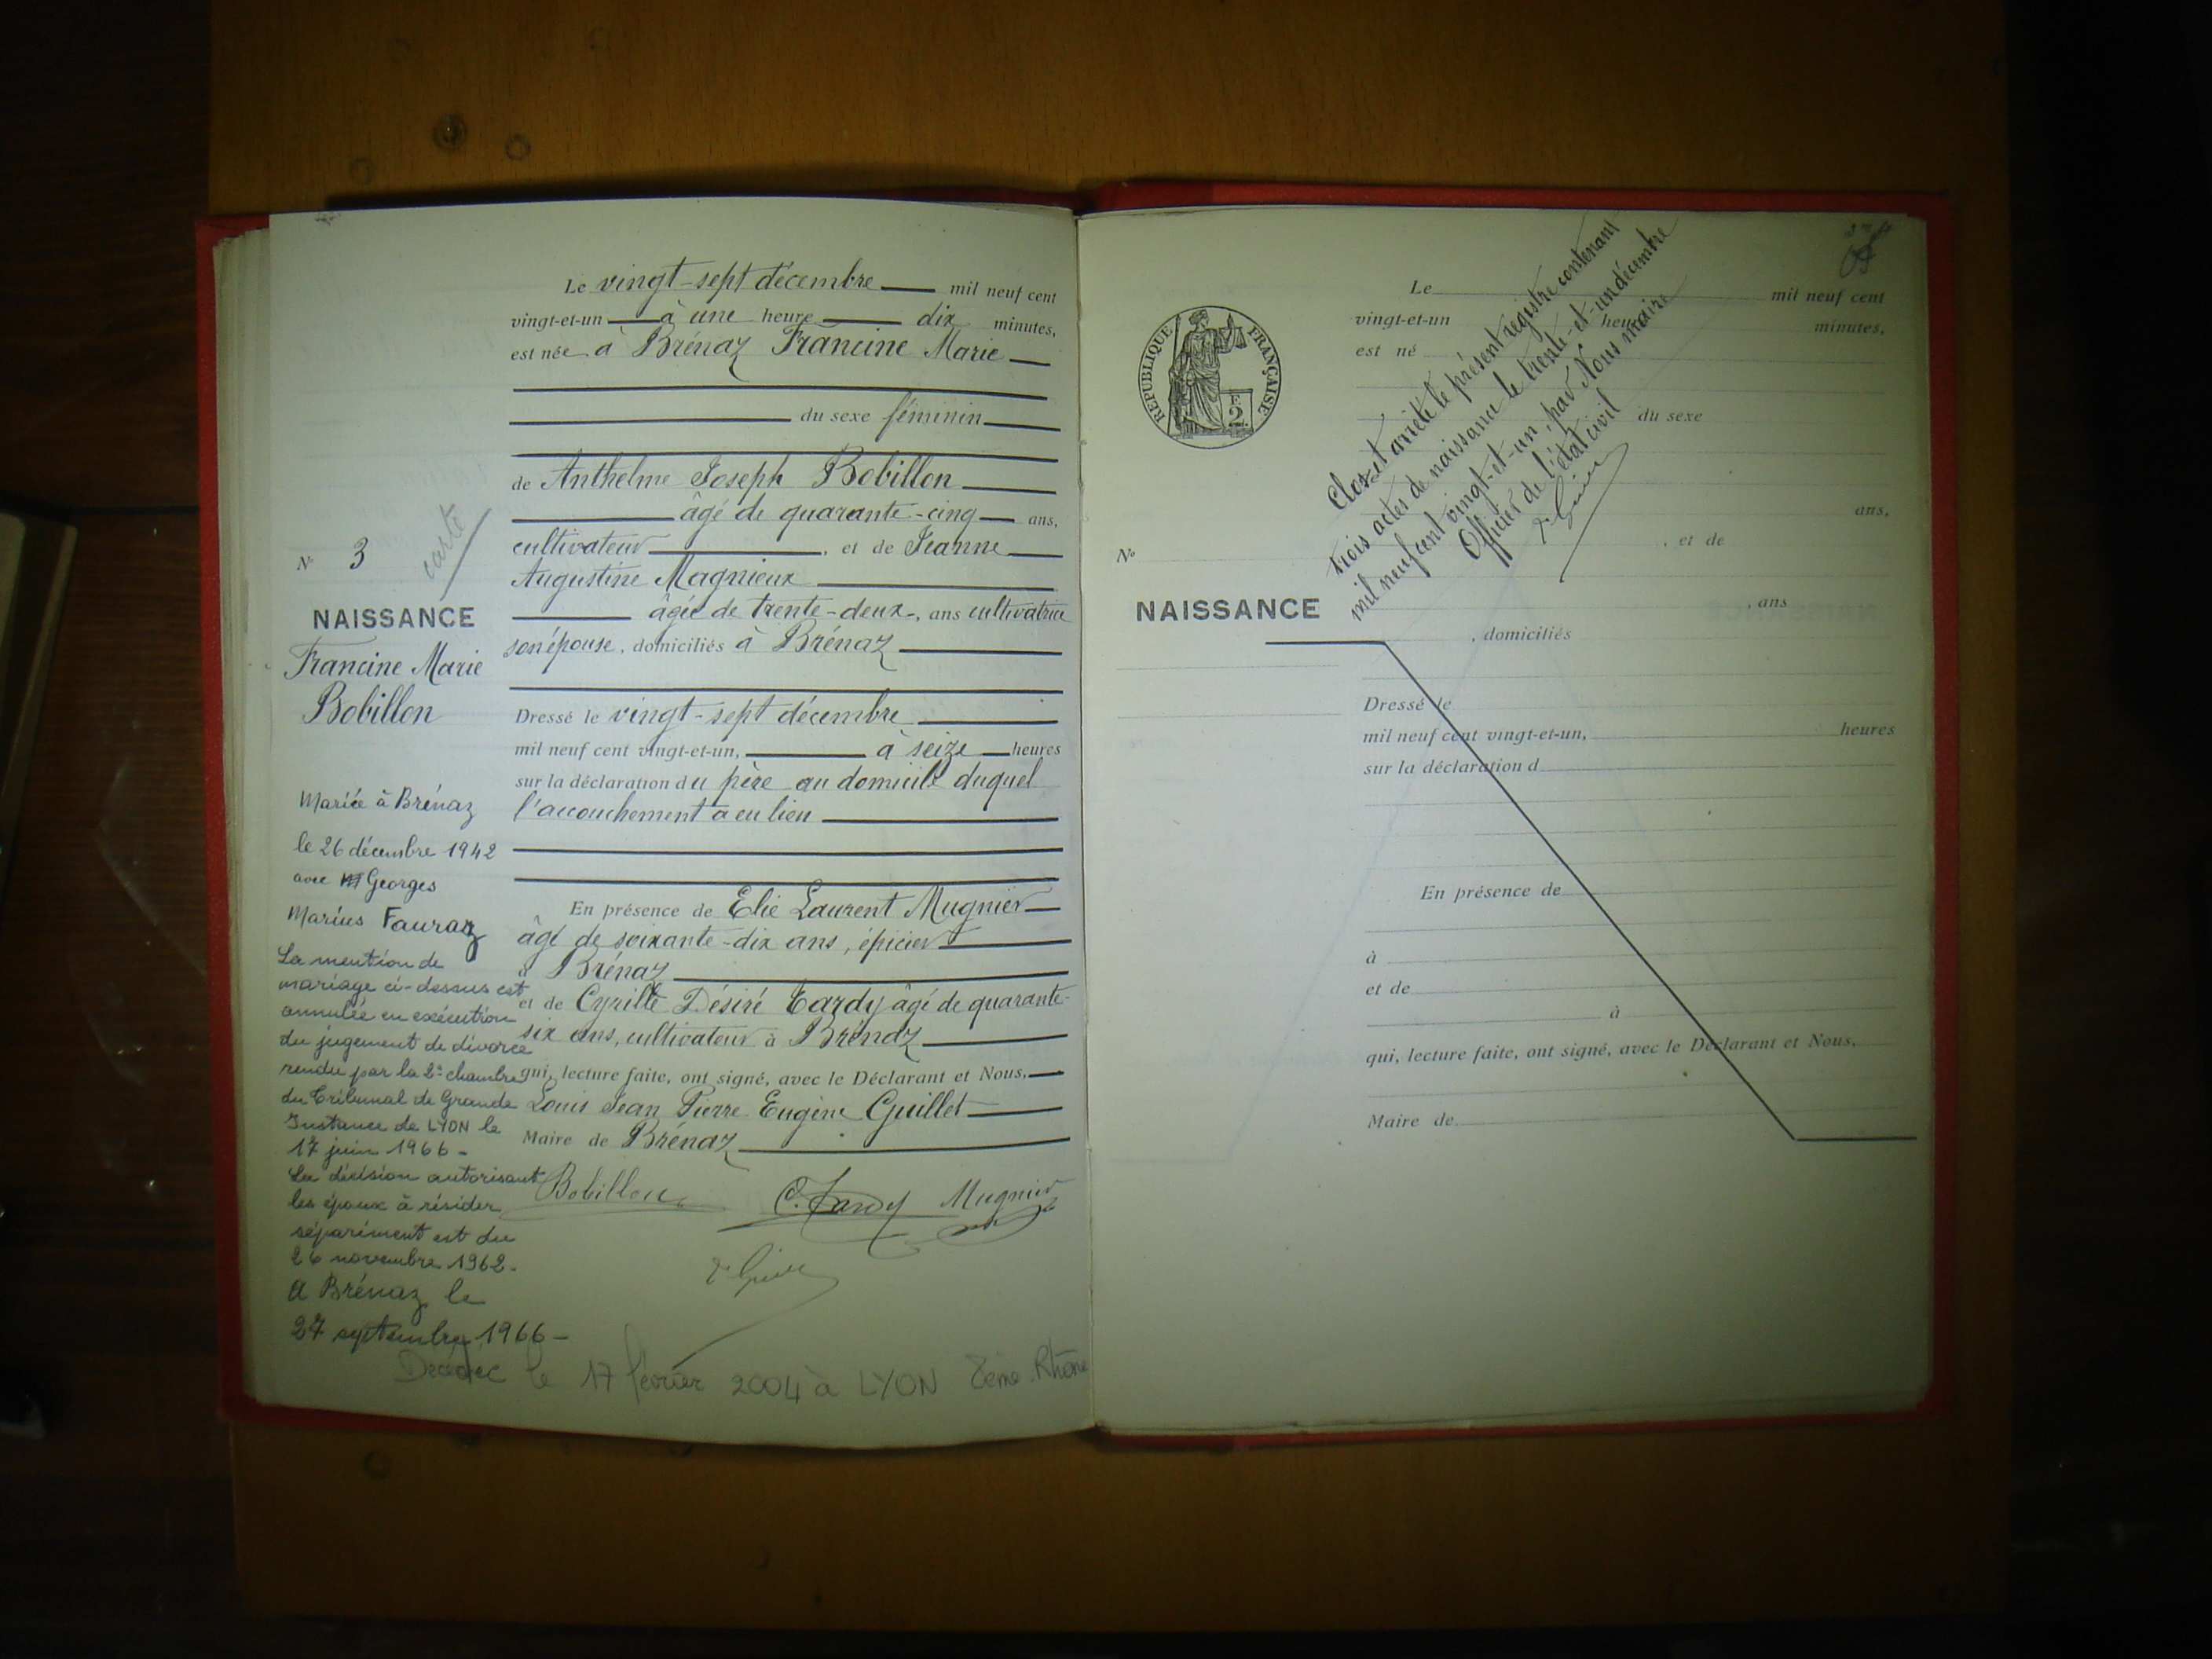 Le vingt-sept décembre mil neuf cent
vingt-et-un à une heure dix minutes,
est née à Brénaz Francine Marie
du sexe féminin
de Anthelme Joseph Bobillon
âgé de quarante-cinq ans,
cultivateur, et de Jeanne
Augustine Magnieux
âgée de trente-deux, ans cultivatrice
son épouse, domiciliés à Brénaz
Dressé le vingt-sept décembre
mil neuf cent vingt-et-un, à seize heures
sur la déclaration du père au domicile duquel
l'accouchement a eu lieu
En présence de Elie Laurent Mugnier
âgé de soixante-dix ans, épicier
à Brénaz
et de Cyrille Désiré Tardy âgé de quarante-
six ans, cultivateur à Brénaz
qui, lecture faite, ont signé, avec le Déclarant et Nous,
Louis Jean Pierre Eugène Guillet
Maire de Brénaz
Bobillon C. Tardy Mugnier
carte
N° 3
NAISSANCE
Francine Marie
Bobillon
Mariée à Brénaz
le 26 décembre 1942
avec Georges
Marius Fauraz
La mention de
mariage ci-dessus est
annulée en exécution
du jugement de divorce
rendu par la 2e chambre
du Tribunal de Grande
Instance de LYON le
17 juin 1966-
La décision autorisant
les époux à résider
séparément est du
26 novembre 1962-
A Brénaz le
27 septembre 1966-
Décédée le 17 février 2004 à LYON 8ème Rhône
REPUBLIQUE FRANÇAISE
2
Clos et arrêté le présent registre contenant
trois actes de naissance le trente-et-un décembre
mil neuf cent vingt-et-un, par Nous maire
Officier de l'état civil
Le mil neuf cent
vingt-et-un heure minutes,
est né
du sexe
ans,
, et de
N°
NAISSANCE
, ans
, domiciliés
Dressé le
mil neuf cent vingt-et-un, heures
sur la déclaration d
En présence de
à
et de
à
qui, lecture faite, ont signé, avec le Déclarant et Nous,
Maire de